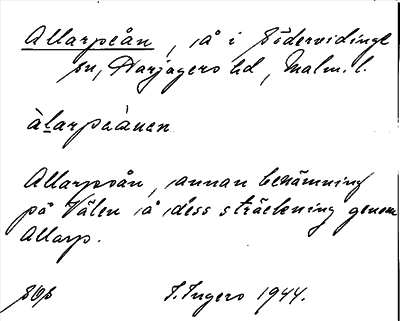 Allarpeån, å i Södervidinge
sn, Harjagers hd, Malm. l.
àlarpeànen
Allarpsån, annan benämning
på Välen å dess sträckning genom
Allarp.
SOS I. Ingers 1944.